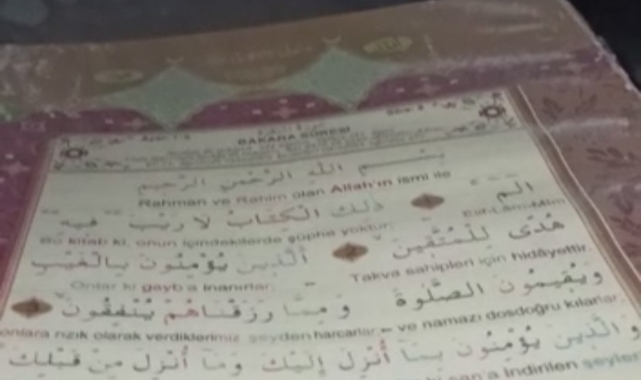 BAKARA SÛRESİ
بِسْــمِ اللّٰهِ الرَّحْمٰنِ الرَّحِيمِ
Rahman ve Rahim olan Allah'ın ismi ile
الٓمٓ ذٰلِكَ الْكِتَابُ لَا رَيْبَ فِيهِ
Elif-Lâm-Mîm Bu kitab ki, onun içindekilerde şüphe yoktur.
هُدًى لِلْمُتَّقِينَ الَّذِينَ يُؤْمِنُونَ بِالْغَيْبِ
Takva sahipleri için hidâyettir. Onlar ki gayb'a inanırlar.
وَيُقِيمُونَ الصَّلٰوةَ وَمِمَّا رَزَقْنَاهُمْ يُنْفِقُونَ
ve namazı dosdoğru kılarlar. rızık olarak verdiklerimiz şeyden harcarlar.
وَالَّذِينَ يُؤْمِنُونَ بِمَا أُنْزِلَ إِلَيْكَ وَمَا أُنْزِلَ مِنْ قَبْلِكَ
san'a indirilen